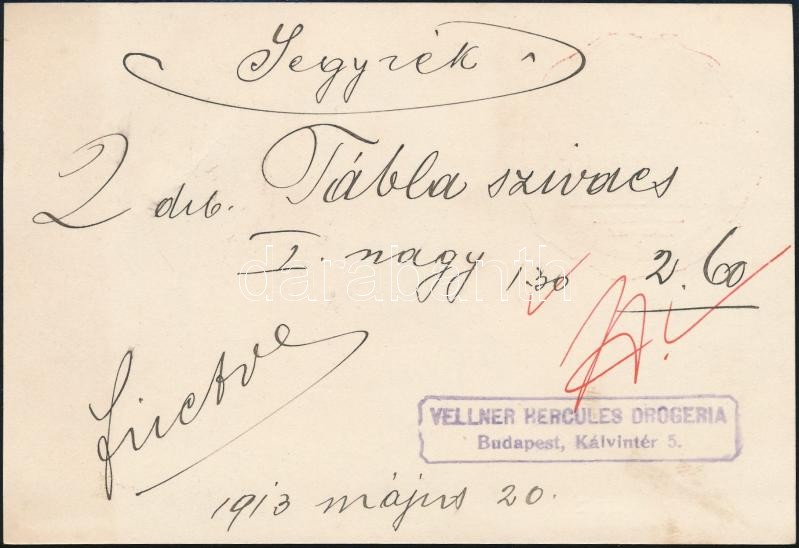 Jegyzék
2 drb. Tábla szivacs
I. nagy 130 2.60
darabanth
fizetve
VELLNER HERCULES DROGERIA
Budapest, Kálvintér 5.
1913 május 20.